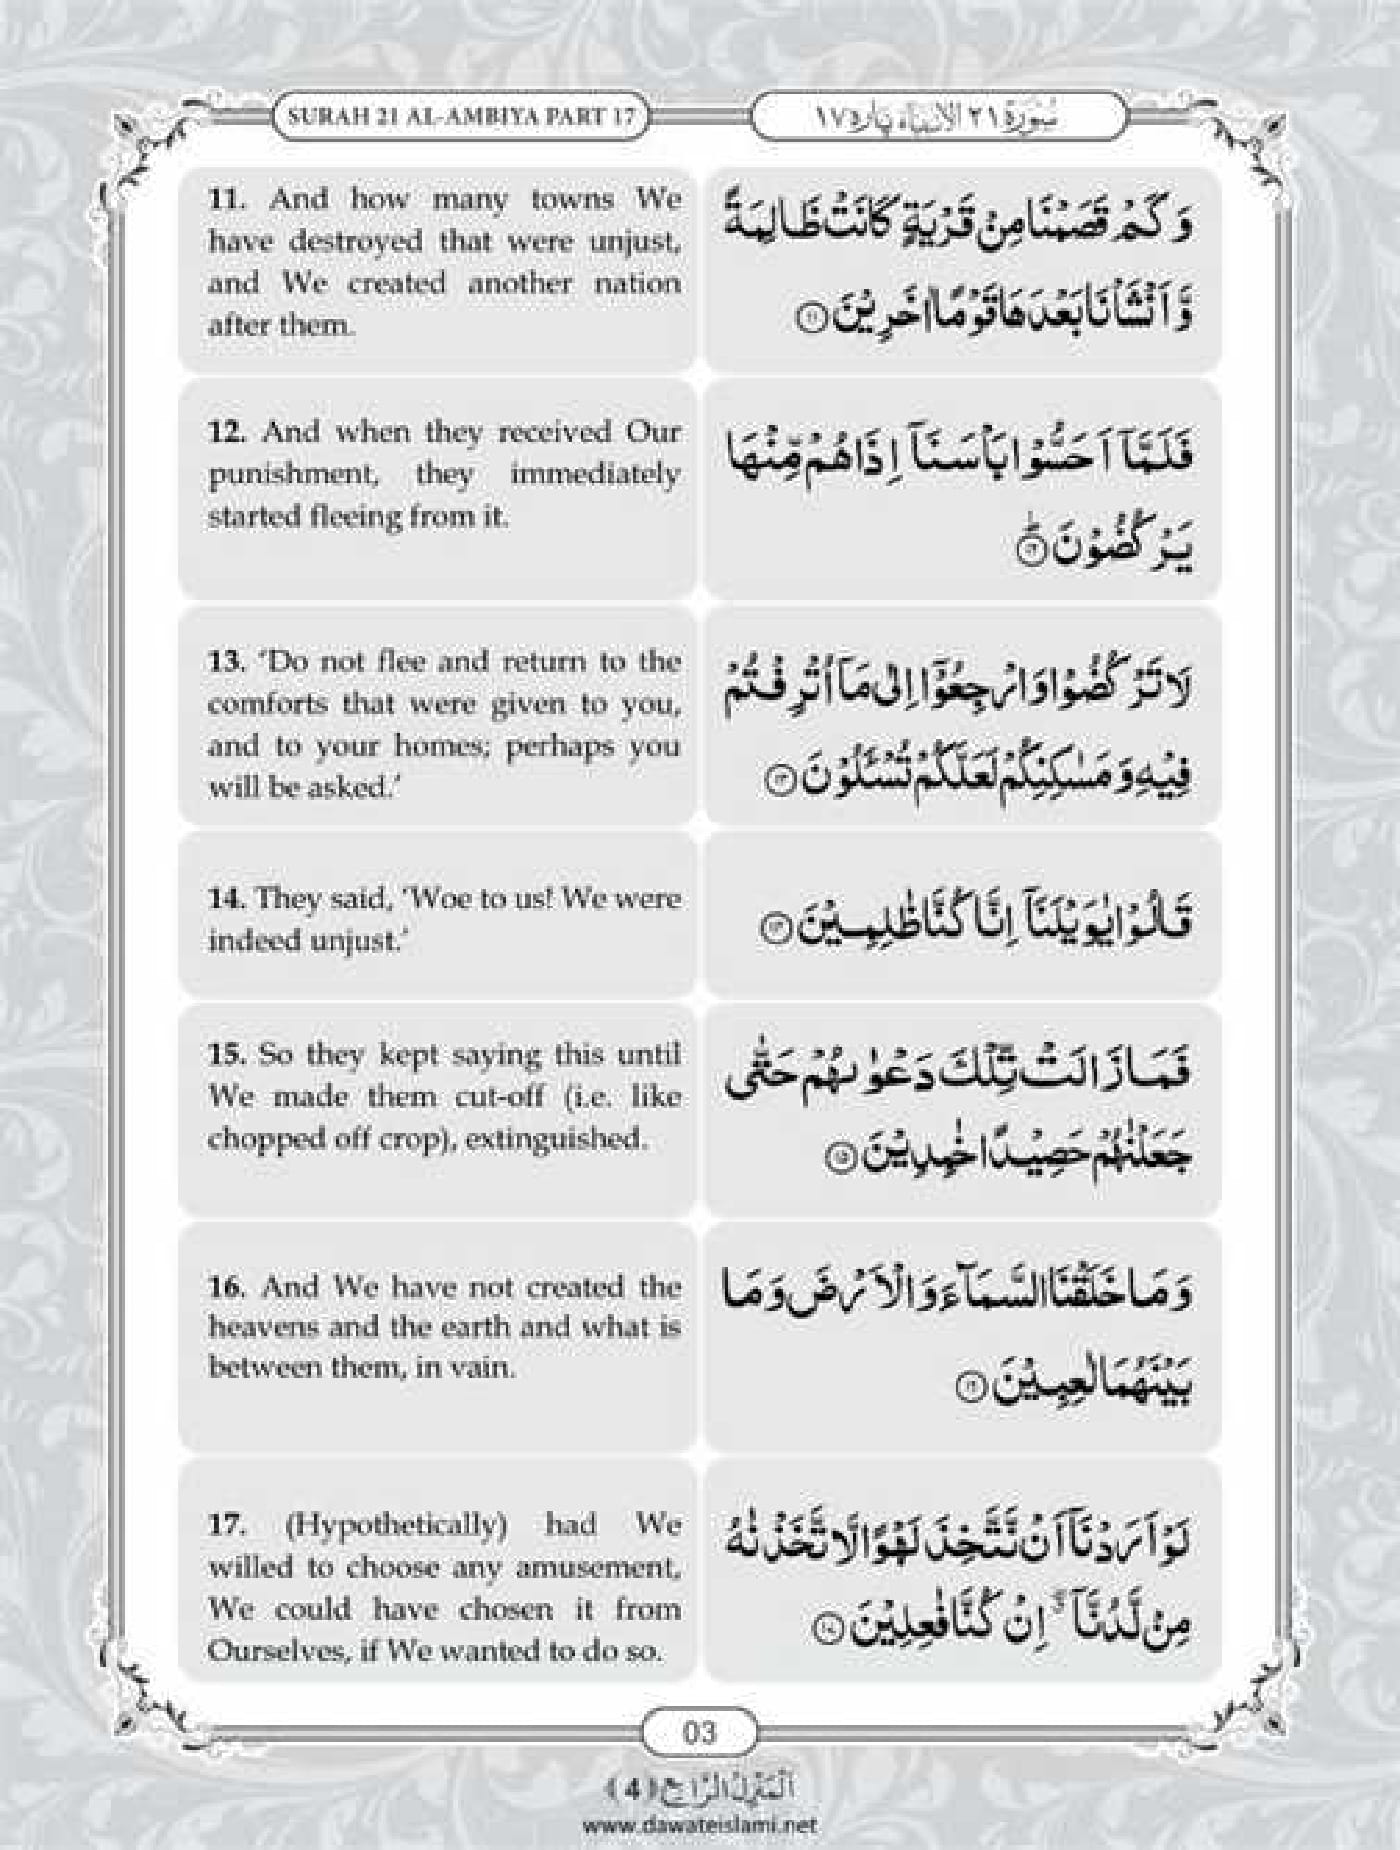 SURAH 21 AL-AMBIYA PART 17
سُوْرَةُ ٢١ الْاَنْبِيَاء پاره ١٧
11. And how many towns We
have destroyed that were unjust,
and We created another nation
after them.
وَ كَمْ قَصَمْنَا مِنْ قَرْیَةٍ كَانَتْ ظَالِمَةً
وَّ اَنْشَاْنَا بَعْدَهَا قَوْمًا اٰخَرِیْنَ ۝۱۱
12. And when they received Our
punishment, they immediately
started fleeing from it.
فَلَمَّاۤ اَحَسُّوْا بَاْسَنَاۤ اِذَا هُمْ مِّنْهَا
یَرْكُضُوْنَؕ ۝۱۲
13. ‘Do not flee and return to the
comforts that were given to you,
and to your homes; perhaps you
will be asked.’
لَا تَرْكُضُوْا وَ ارْجِعُوْۤا اِلٰى مَاۤ اُتْرِفْتُمْ
فِیْهِ وَ مَسٰكِنِكُمْ لَعَلَّكُمْ تُسْـَٔلُوْنَ ۝۱۳
14. They said, ‘Woe to us! We were
indeed unjust.’
قَالُوْا یٰوَیْلَنَاۤ اِنَّا كُنَّا ظٰلِمِیْنَ ۝۱۴
15. So they kept saying this until
We made them cut-off (i.e. like
chopped off crop), extinguished.
فَمَا زَالَتْ تِّلْكَ دَعْوٰىهُمْ حَتّٰى
جَعَلْنٰهُمْ حَصِیْدًا خٰمِدِیْنَ ۝۱۵
16. And We have not created the
heavens and the earth and what is
between them, in vain.
وَ مَا خَلَقْنَا السَّمَآءَ وَ الْاَرْضَ وَ مَا
بَیْنَهُمَا لٰعِبِیْنَ ۝۱۶
17. (Hypothetically) had We
willed to choose any amusement,
We could have chosen it from
Ourselves, if We wanted to do so.
لَوْ اَرَدْنَاۤ اَنْ نَّتَّخِذَ لَهْوًا لَّا تَّخَذْنٰهُ
مِنْ لَّدُنَّاۤ ۖۗ اِنْ كُنَّا فٰعِلِیْنَ ۝۱۷
03
اَلْمَنْزِلُ الرَّابِع ﴿4﴾
www.dawateislami.net